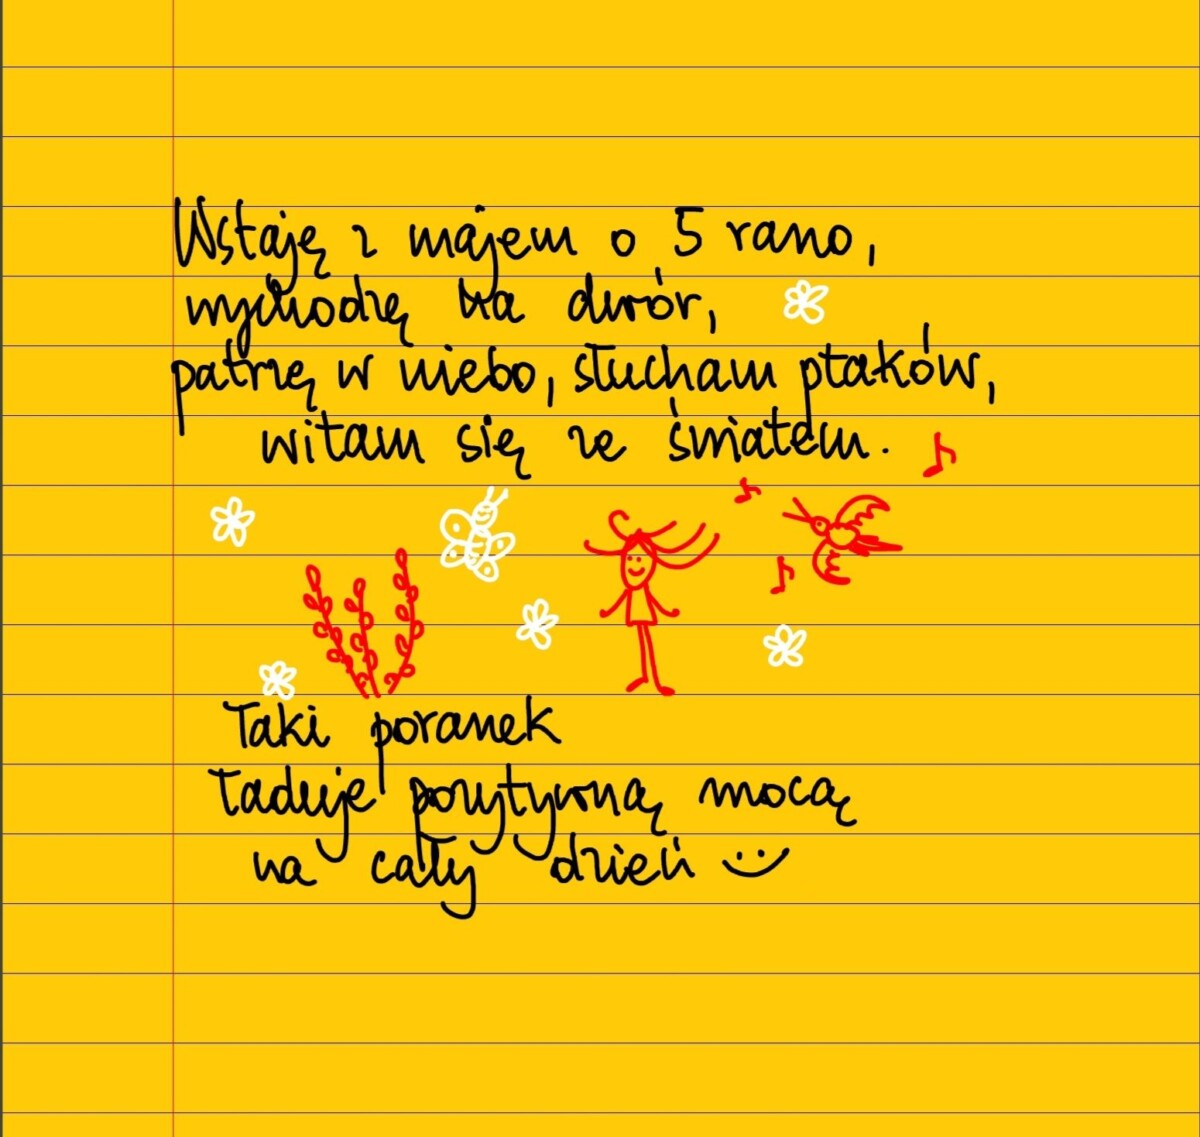 Wstaję z majem o 5 rano,
wychodzę na dwór,
patrzę w niebo, słucham ptaków,
witam się ze światem.
Taki poranek
ładuje pozytywną mocą
na cały dzień